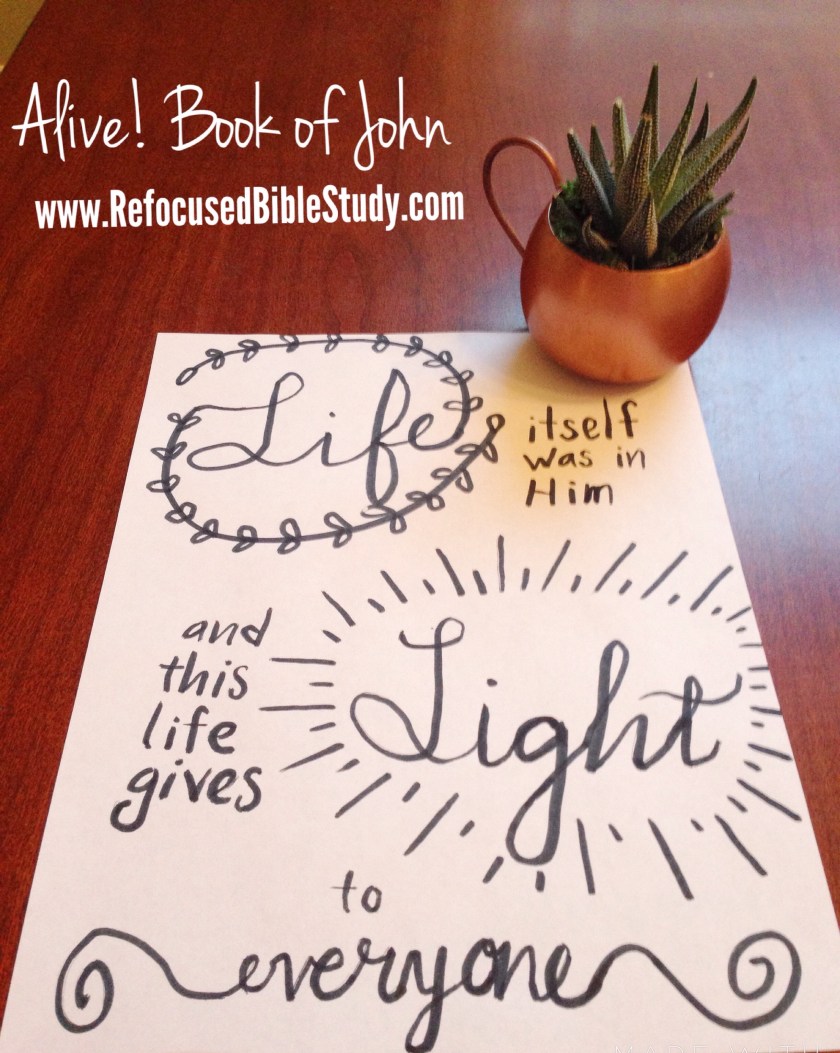 Alive! Book of John
www.RefocusedBibleStudy.com
Life
itself
was in
Him
and
this
life
gives
Light
to
everyone